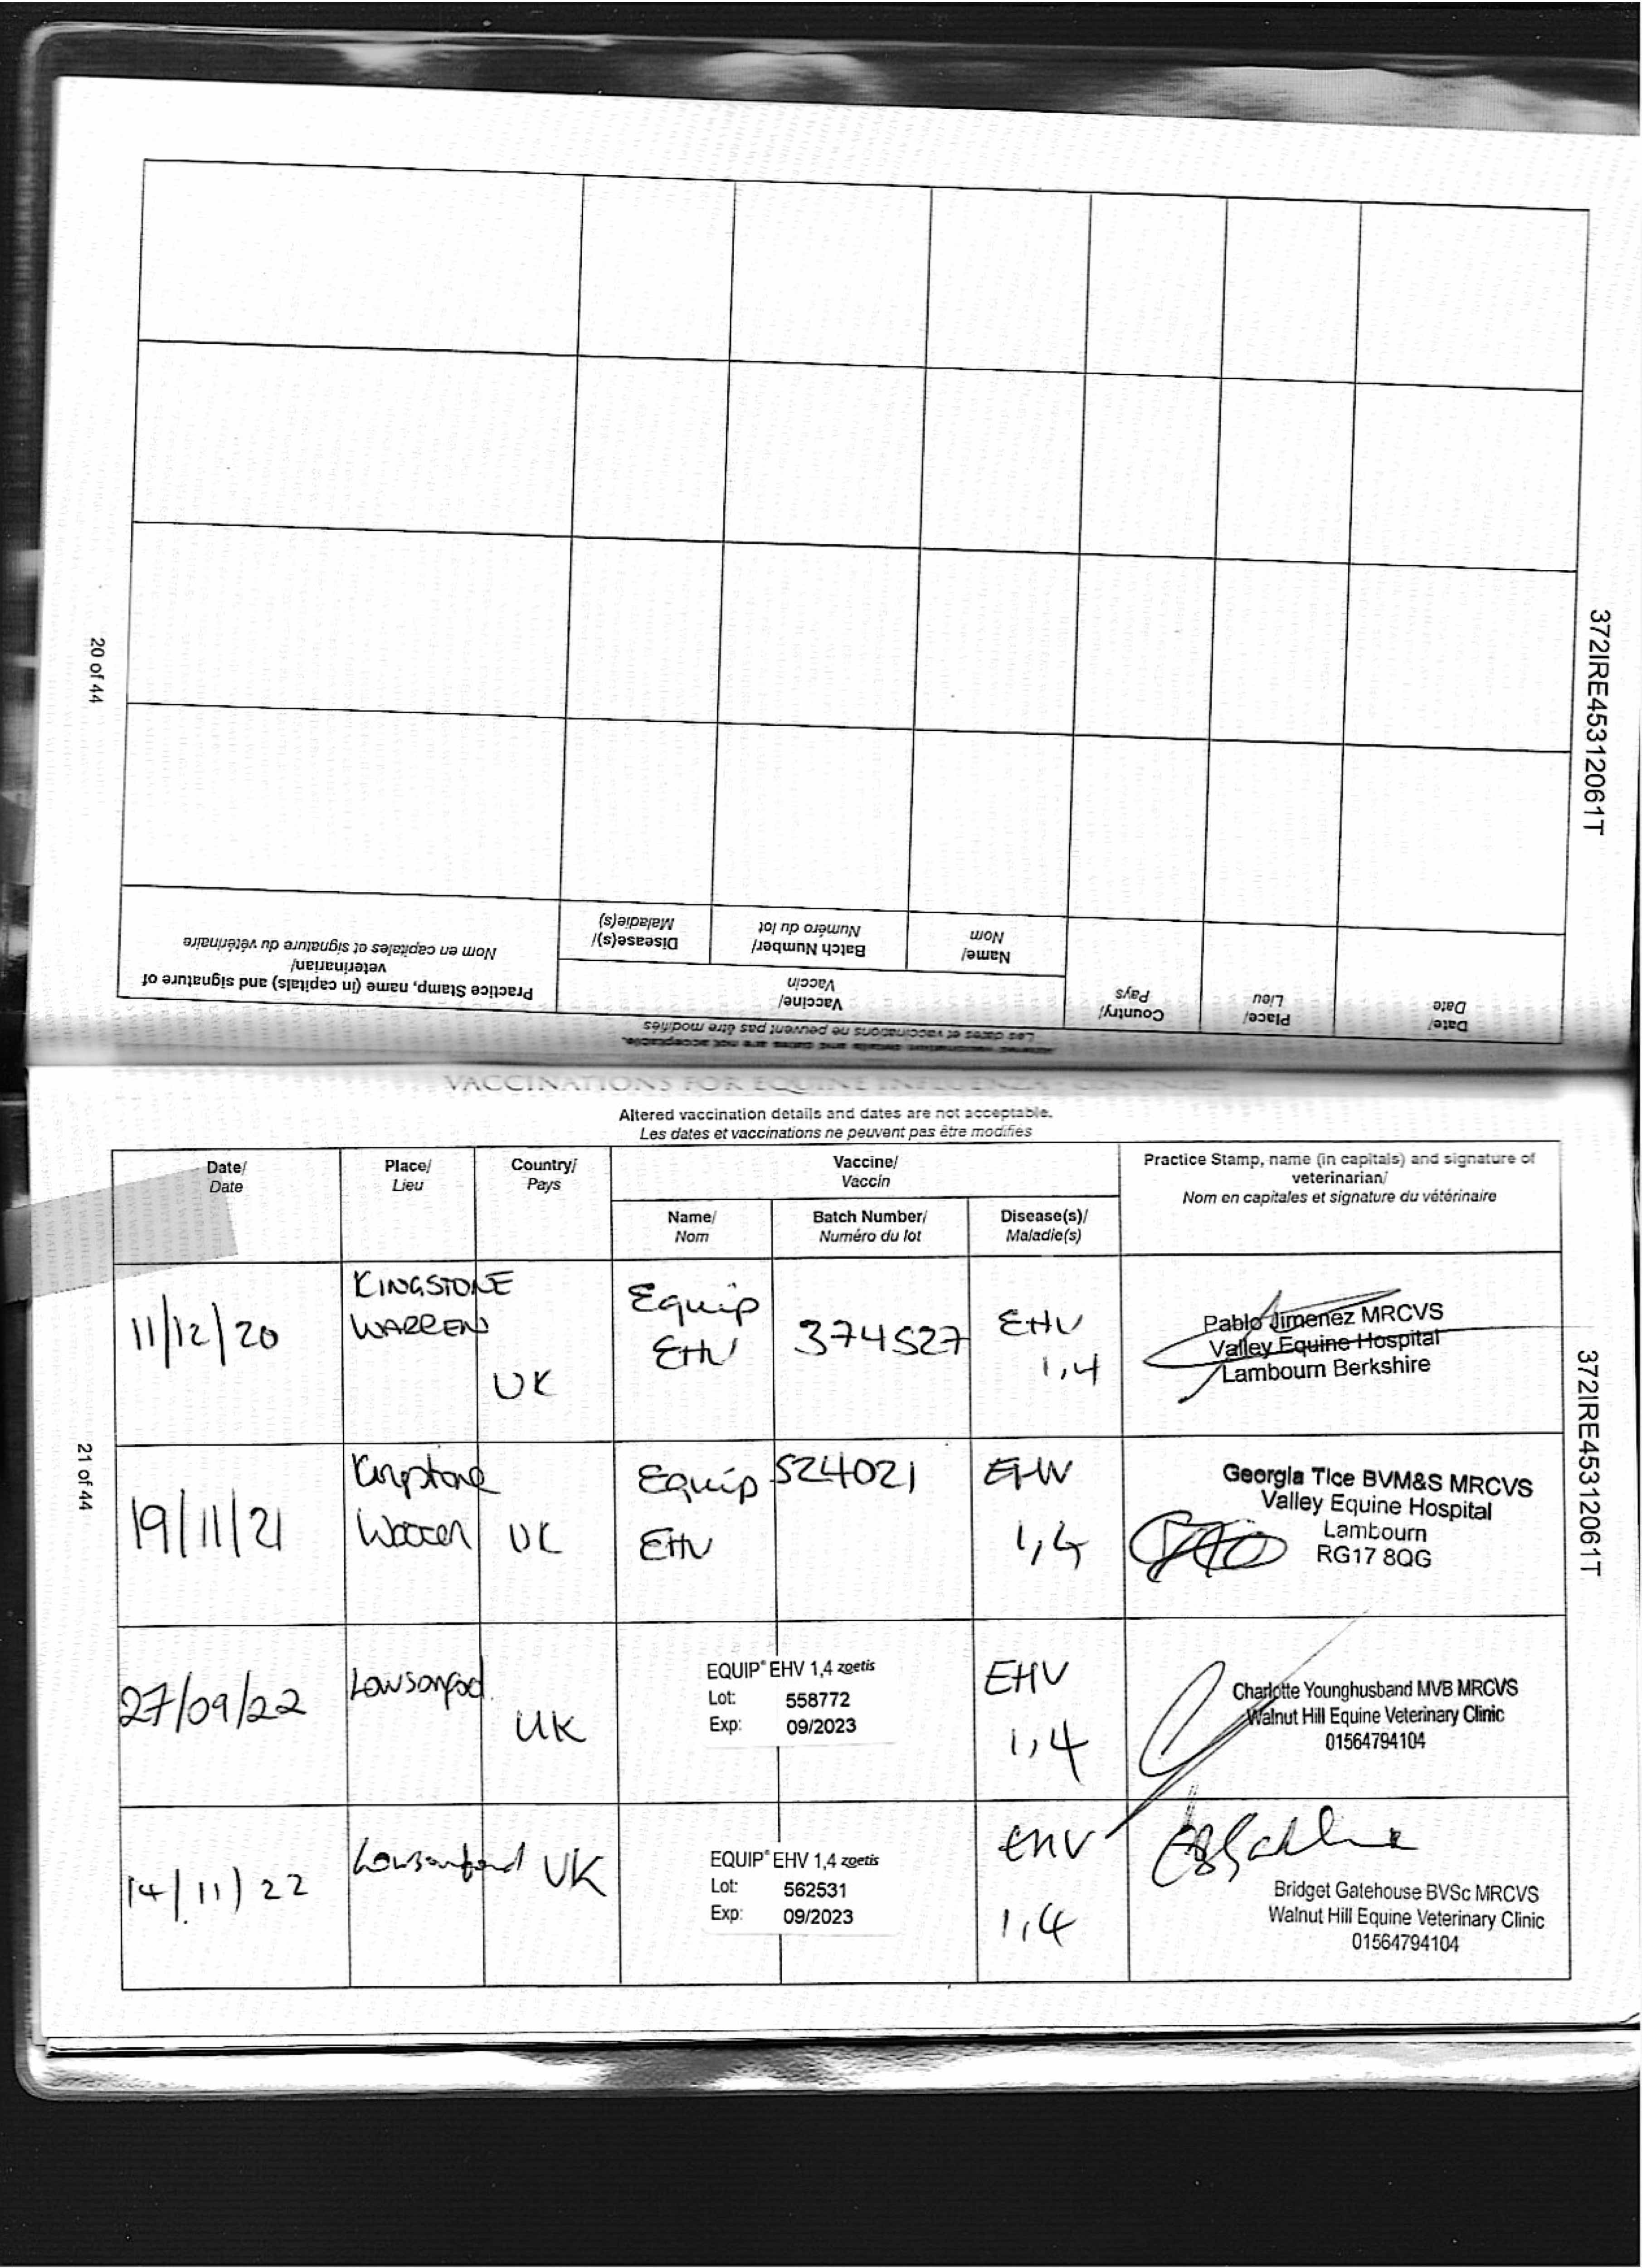 372IRE45312061T
20 of 44
Altered vaccination details and dates are not acceptable.
Les dates et vaccinations ne peuvent pas être modifiés
Date/
Date
Place/
Lieu
Country/
Pays
Vaccine/
Vaccin
Name/
Nom
Batch Number/
Numéro du lot
Disease(s)/
Maladie(s)
Practice Stamp, name (in capitals) and signature of
veterinarian/
Nom en capitales et signature du vétérinaire
VACCINATIONS FOR EQUINE INFLUENZA
Altered vaccination details and dates are not acceptable.
Les dates et vaccinations ne peuvent pas être modifiés
Date/
Date
Place/
Lieu
Country/
Pays
Vaccine/
Vaccin
Name/
Nom
Batch Number/
Numéro du lot
Disease(s)/
Maladie(s)
Practice Stamp, name (in capitals) and signature of
veterinarian/
Nom en capitales et signature du vétérinaire
11/12/20
KINGSTONE
WARREN
UK
Equip
EHV
374527
EHV
1,4
Pablo Jimenez MRCVS
Valley Equine Hospital
Lambourn Berkshire
19/11/21
Kingstone
Warren
UK
Equip
EHV
524021
EHV
1,4
Georgia Tice BVM&S MRCVS
Valley Equine Hospital
Lambourn
RG17 8QG
27/09/22
Lowsonford
UK
EQUIP® EHV 1,4 zoetis
Lot: 558772
Exp: 09/2023
EHV
1,4
Charlotte Younghusband MVB MRCVS
Walnut Hill Equine Veterinary Clinic
01564794104
14/11/22
Lowsonford
UK
EQUIP® EHV 1,4 zoetis
Lot: 562531
Exp: 09/2023
EHV
1,4
Bridget Gatehouse BVSc MRCVS
Walnut Hill Equine Veterinary Clinic
01564794104
21 of 44
372IRE45312061T